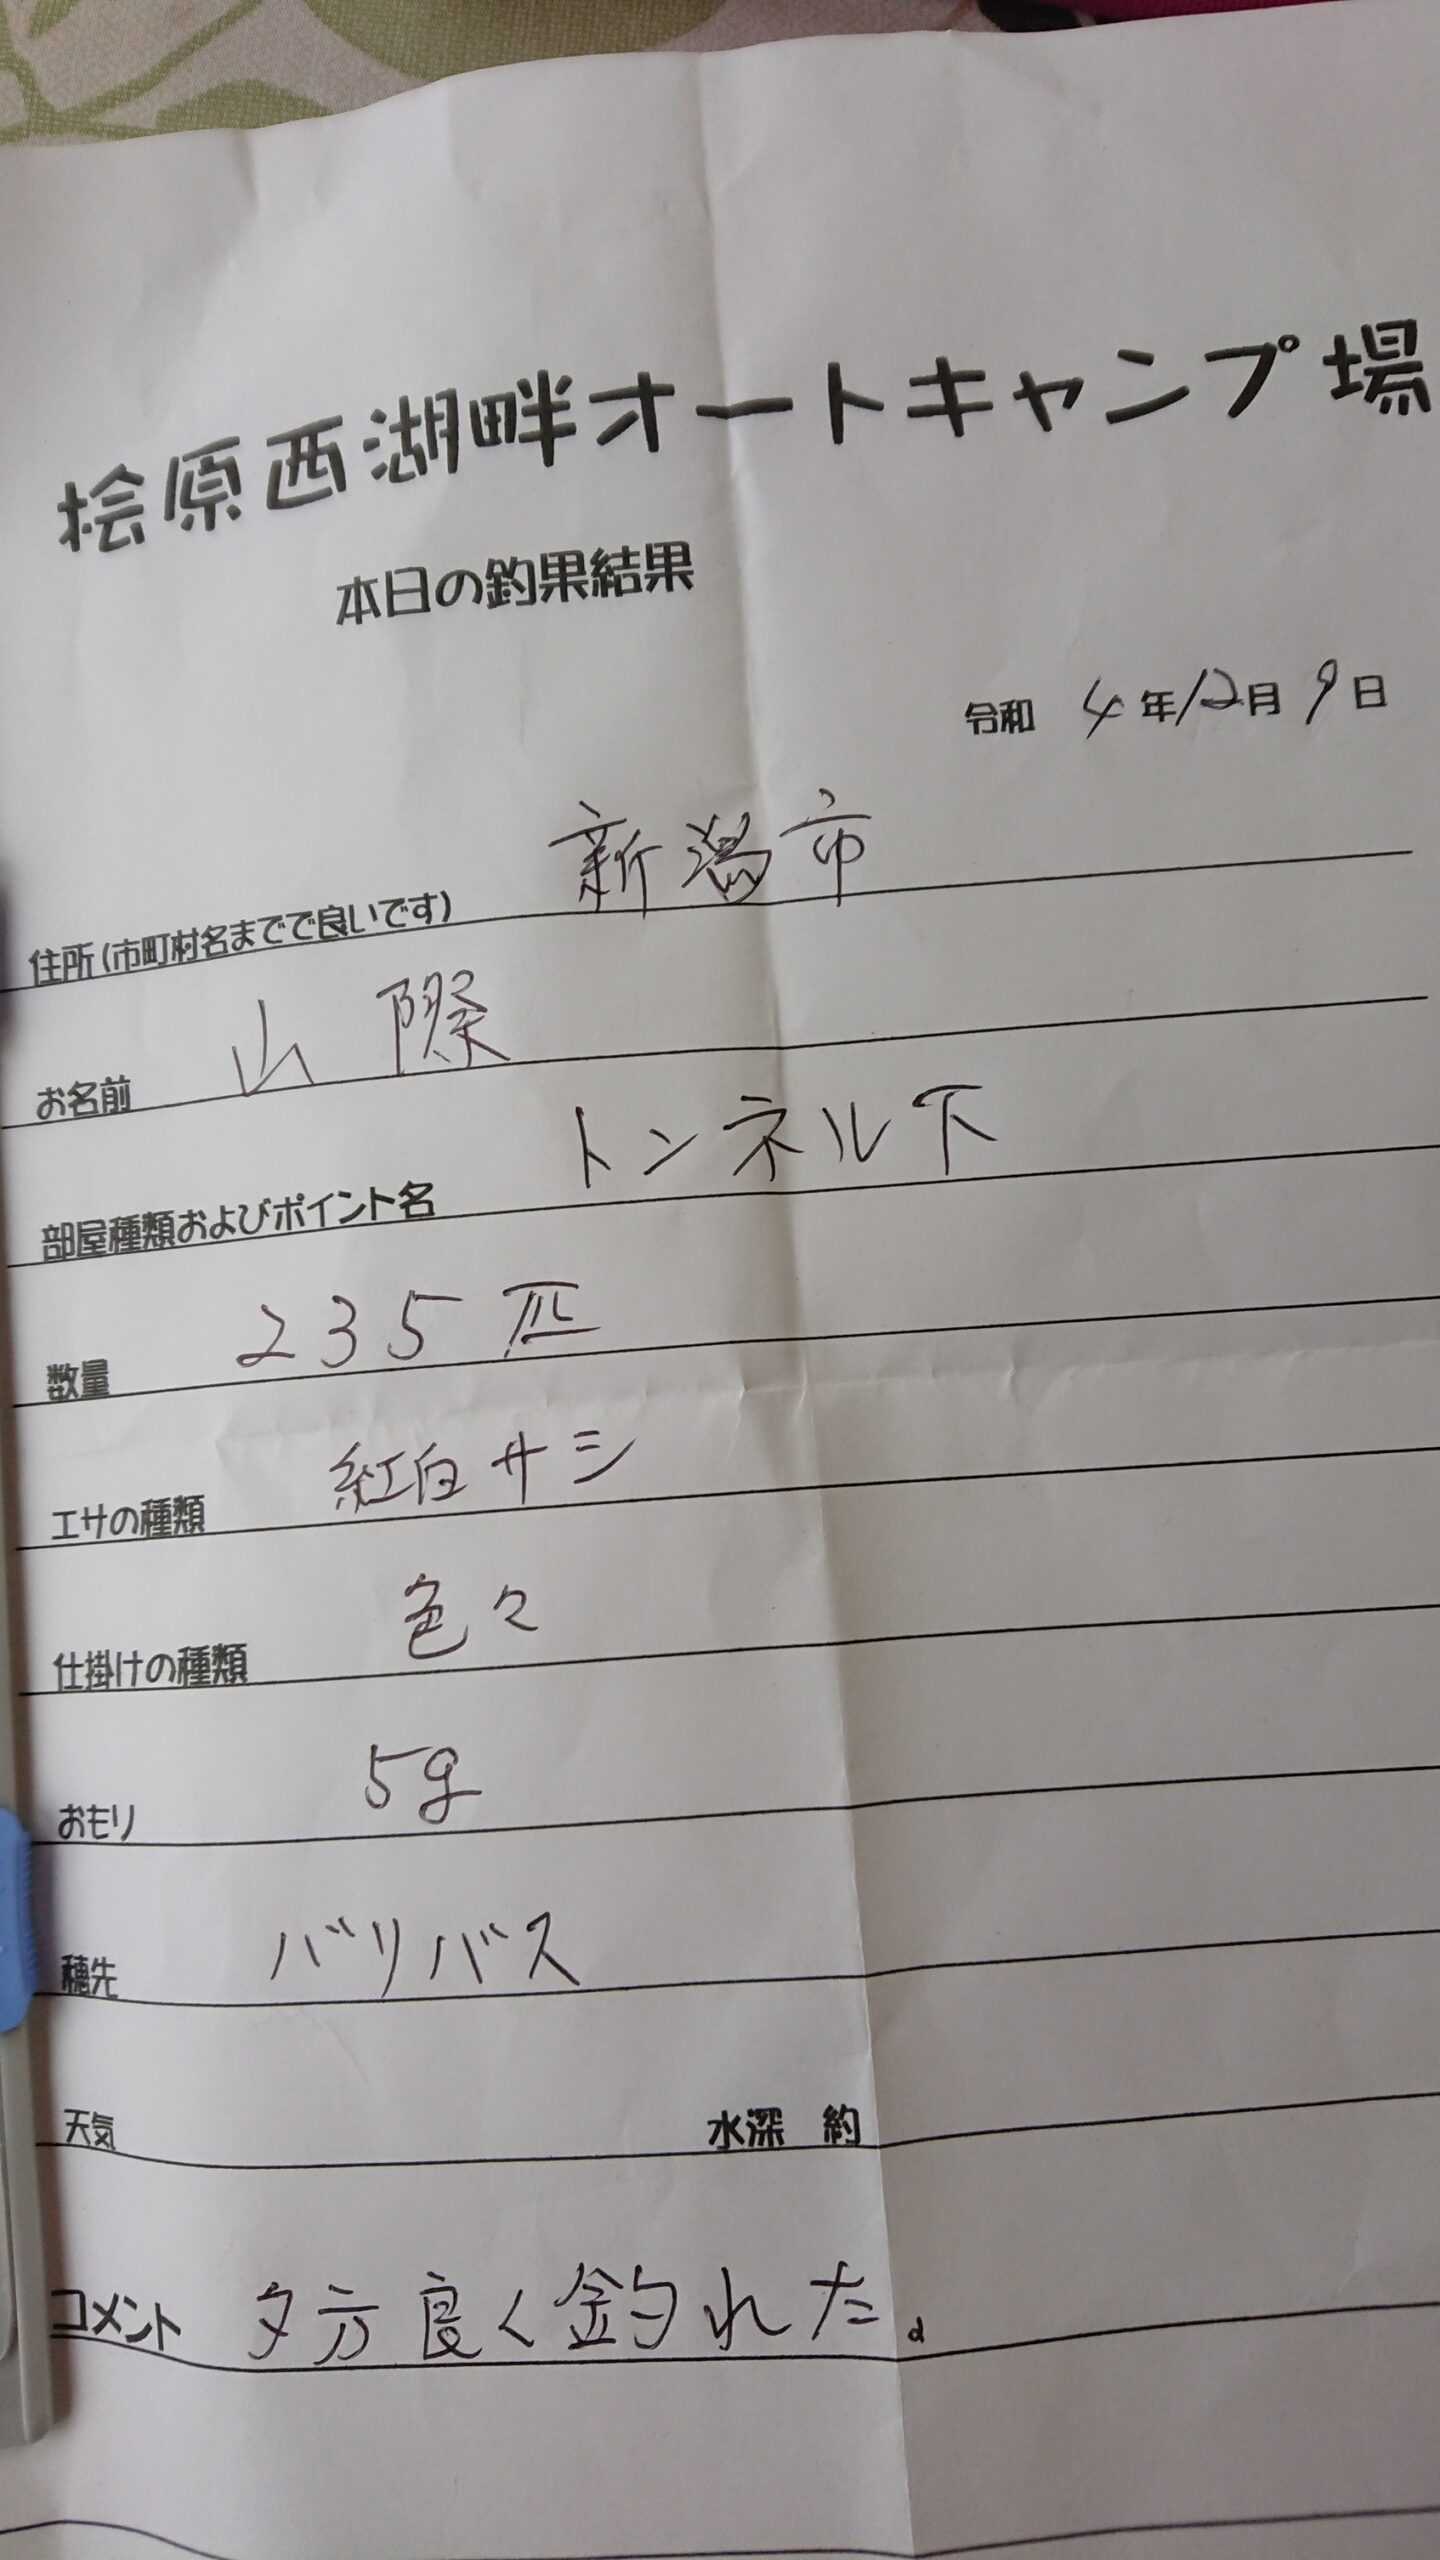 桧原西湖畔オートキャンプ場
本日の釣果結果
令和 4年12月9日
住所(市町村名までで良いです) 新潟市
お名前 山際
部屋種類およびポイント名 トンネル下
数量 235匹
エサの種類 紅白サシ
仕掛けの種類 色々
おもり 5g
穂先 バリバス
天気 水深 約
コメント 夕方良く釣れた。